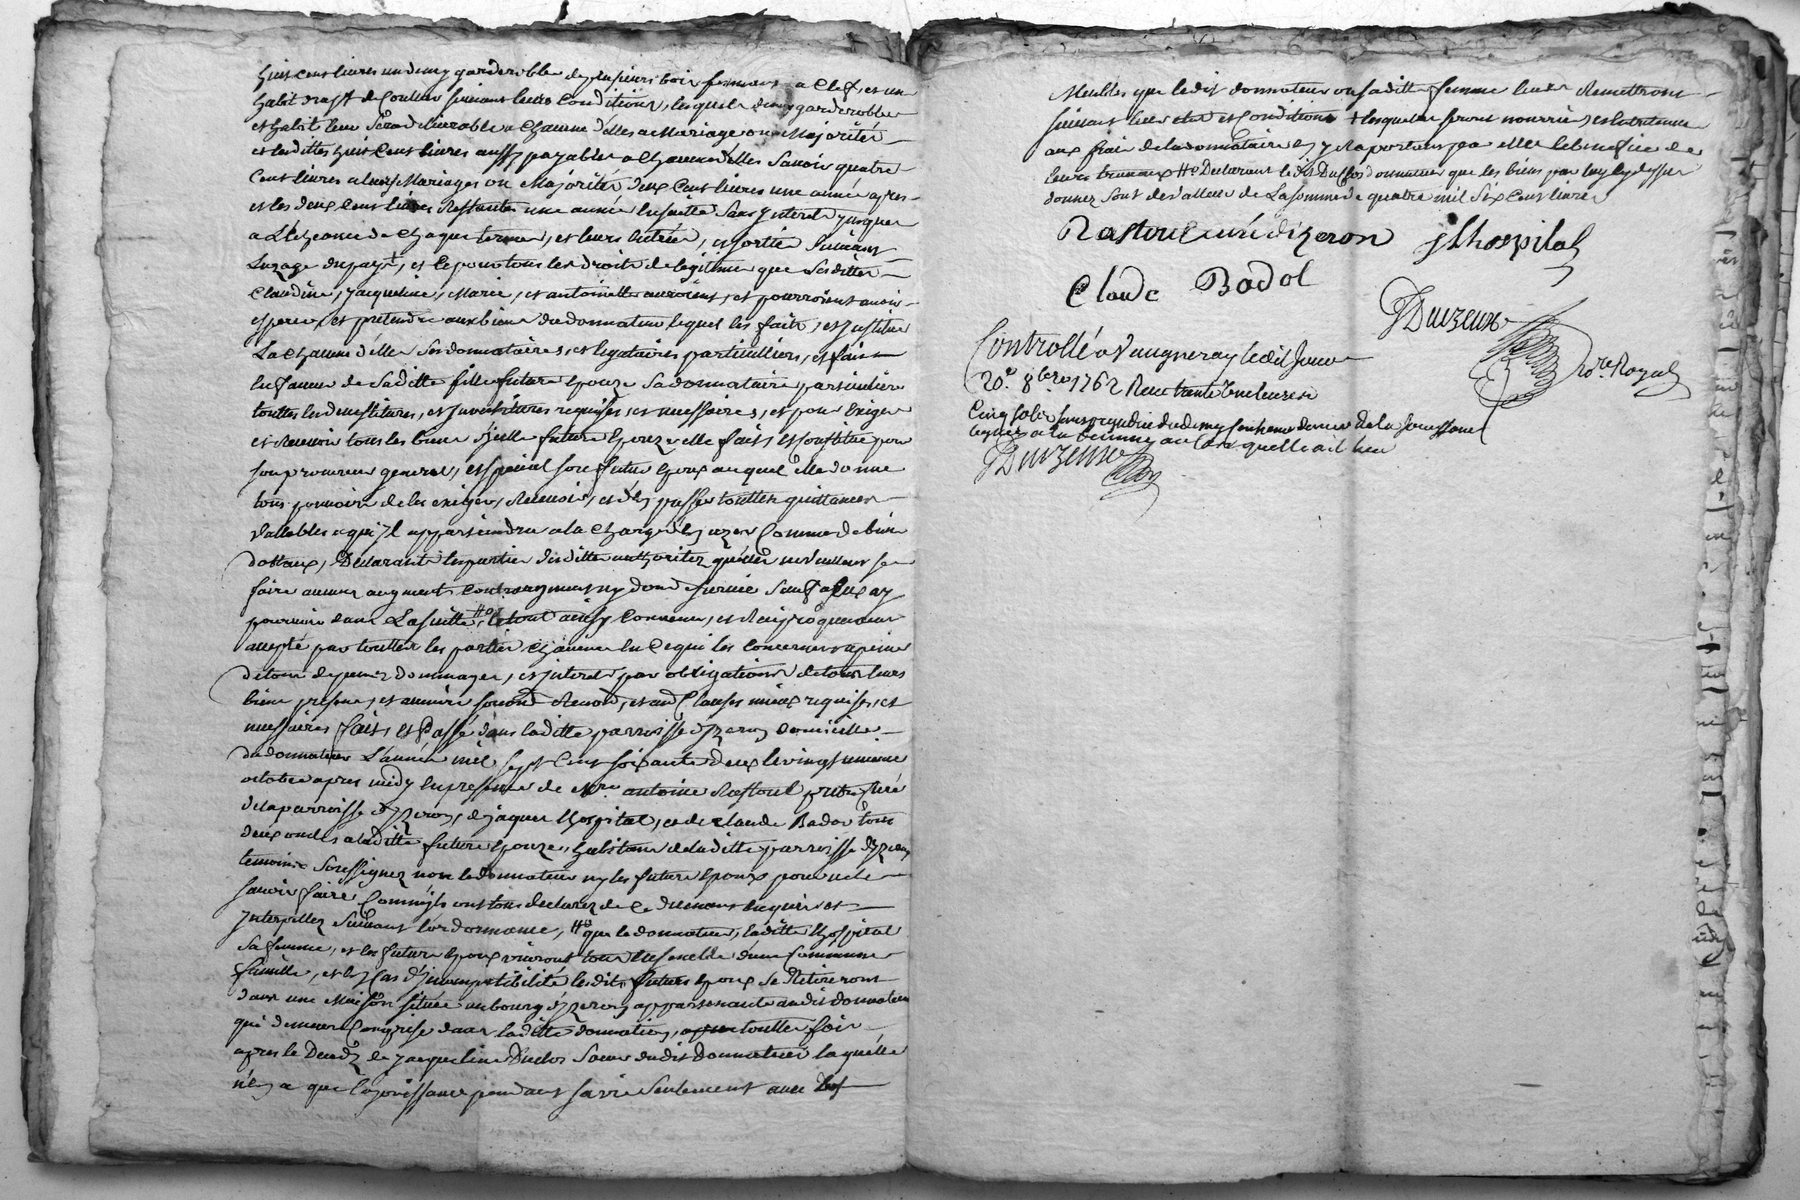 huit cent livres un demy garderobbe de plusieurs bois fermant a clef, et un
habit de couleur suivant leurs conditions, lesquels demy garderobbe
et habit leur sera delivrable a chacune d'elles a Mariage ou Majorités
et lesdittes huit cent livres aussy payable a chacune d'elles savoir quatre
cent livres a leurs Mariages ou Majorités deux cent livres une année apres
et les deux cent livres restantes une année ensuitte sans interet jusques
a l'echeance de chaque terme, et leurs entrée, et sortie suivant
l'uzage du pays, et ce pour tous les droits de legitime que lesdittes
Claudine, jacqueline, Marie, et antoinette auroient, et pourroient avoir
esperer, et pretendre aux biens du donnateur lequel les fait, et institue
la chacune d'elle ses donnataires, et legataires particulliers, et fait
en faveur de saditte fille future epouze sa donnataire particuliere
touttes les devestitures, et investitures requises, et necessaires, et pour exiger
et recevoir tous les biens d'icelle future epouze elle fait, et constitue pour
son procureur general, et special son futur epoux auquel elle donne
tous pouvoirs de les exiger, recevoir, et d'en passer touttes quittances
vallables a qu'il appartiendra a la charge d'en uzer comme de biens
dottaux, Declarant les parties de ditte authoritez qu'elles ne veullent se
faire aucun augment contraugment ny don de survie sauf a eux a y
pourvoir dans la suitte, # le tout ainsy convenu, et reciproquement
accepté par touttes les parties chacune en ce qui les concerne a peine
de tous depens dommages, et interet par obligations de tous leurs
biens presens, et avenirs soumis renon, et aux clauses mieux requises, et
necessaires fait, et Passé dans laditte parroisse d'yzeron domicille
du donnateur L'année mil sept cent soixante deux le vingtunieme
octobre apres midy en presence de Mre antoine Rastoul pretre curé
de la parroisse d'yzeron, de jaques Lhospital, et de claude Badol tous
deux oncles a laditte future epouze, habitans de laditte parroisse d'yzeron
temoins soussignez non le donnateur ny les futurs epoux pour ne le
savoir faire comm'ils ont tous declarez de ce duement enquis et
Interpellez suivant l'ordonnance, # que le donnateur, laditte Lhospital
sa femme, et les futurs epoux vivront tous ensemble d'une commune
famille, et en cas d'incompatibilité lesdits futurs epoux se retireront
dans une Maison située au bourg d'yzeron appartenante audit donnateur
qui demeure comprise dans laditte donnation, touttes fois
apres le Deceds de jacqueline Duclos sœur dudit Donnateur laquelle
n'en a que la jouissance pendant sa vie seulement avec les
Meubles que ledit donnateur ou saditte femme leurs Remettront
suivant leur etat et Conditions + lesquelles seront nourries, et entretenue
aux frais de la donnataire en y raportant par elles le benefice de
leurs travaux # Declarant ledit Duclos donnateur que les biens par luy cy dessus
donnez sont de valleur de La somme de quatre mil six cent livres
Rastoul curé d'izeron jLhospital
Claude Badol
JDuvzeux
nore Royal
Controllé a Vaugneray ledit jour
20e 8bre 1762 Reçu trente livres
Cinq sols sans prejudice du demy centieme denier de la
JDuvzeux